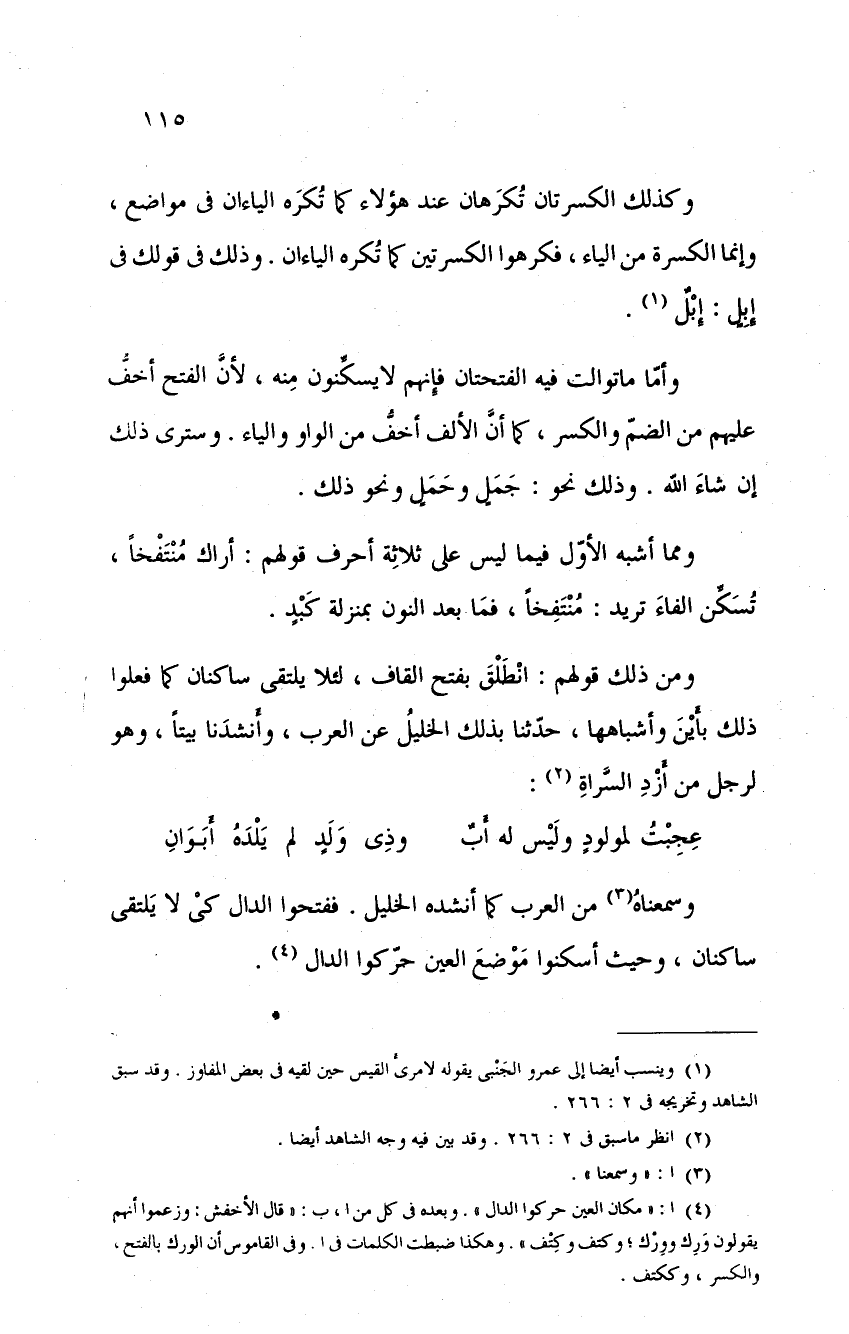 ١١٥
وكذلك الكسرتان تُكرَهان عند هؤلاء كما تُكرَه الياءان فى مواضع ،
وإنما الكسرة من الياء ، فكرهوا الكسرتين كما تُكره الياءان . وذلك فى قولك فى
إِبِلٍ : إِبْلٌ (١) .
وأمّا ماتوالت فيه الفتحتان فإِنهم لايسكِّنون مِنه ، لأنَّ الفتح أخفُّ
عليهم من الضمّ والكسر ، كما أنَّ الألف أخفُّ من الواو والياء . وسترى ذلك
إن شاءَ الله . وذلك نحو : جَمَلٍ وحَمَلٍ ونحو ذلك .
ومما أشبه الأوّل فيما ليس على ثلاثِة أحرف قولهم : أراك مُنْتَفْخاً ،
تُسَكِّن الفاءَ تريد : مُنْتَفِخاً ، فمَا بعد النون بمنزلة كَبْدٍ .
ومن ذلك قولهم : انْطَلْقَ بفتح القاف ، لئلا يلتقى ساكنان كما فعلوا
ذلك بأَيْنَ وأشباهها ، حدّثنا بذلك الخليلُ عن العرب ، وأَنشدَنا بيتاً ، وهو
لرجل من أَزْدِ السَّراةِ (٢) :
عِجِبْتُ لمولودٍ ولَيْس له أَبٌ وذِى وَلَدٍ لم يَلْدَهُ أَبَوَانِ
وسمعناهُ(٣) من العرب كما أنشده الخليل . ففتحوا الدال كىْ لا يَلتقى
ساكنان ، وحيث أسكنوا مَوْضعَ العين حرّكوا الدال (٤) .
(١) وينسب أيضا إلى عمرو الجَنْبى يقوله لامرىُ القيس حين لقيه فى بعض المفاوز . وقد سبق
الشاهد وتخريجه فى ٢ : ٢٦٦ .
(٢) انظر ماسبق فى ٢ : ٢٦٦ . وقد بين فيه وجه الشاهد أيضا .
(٣) ا : « وسمعنا » .
(٤) ا : « مكان العين حركوا الدال » . وبعده فى كل من ا ، ب : « قال الأخفش : وزعموا أنهم
يقولون وَرِك ووِرْك ؛ وكتف وكِتْف » . وهكذا ضبطت الكلمات فى ا . وفى القاموس أن الورك بالفتح ،
والكسر ، وككتف .